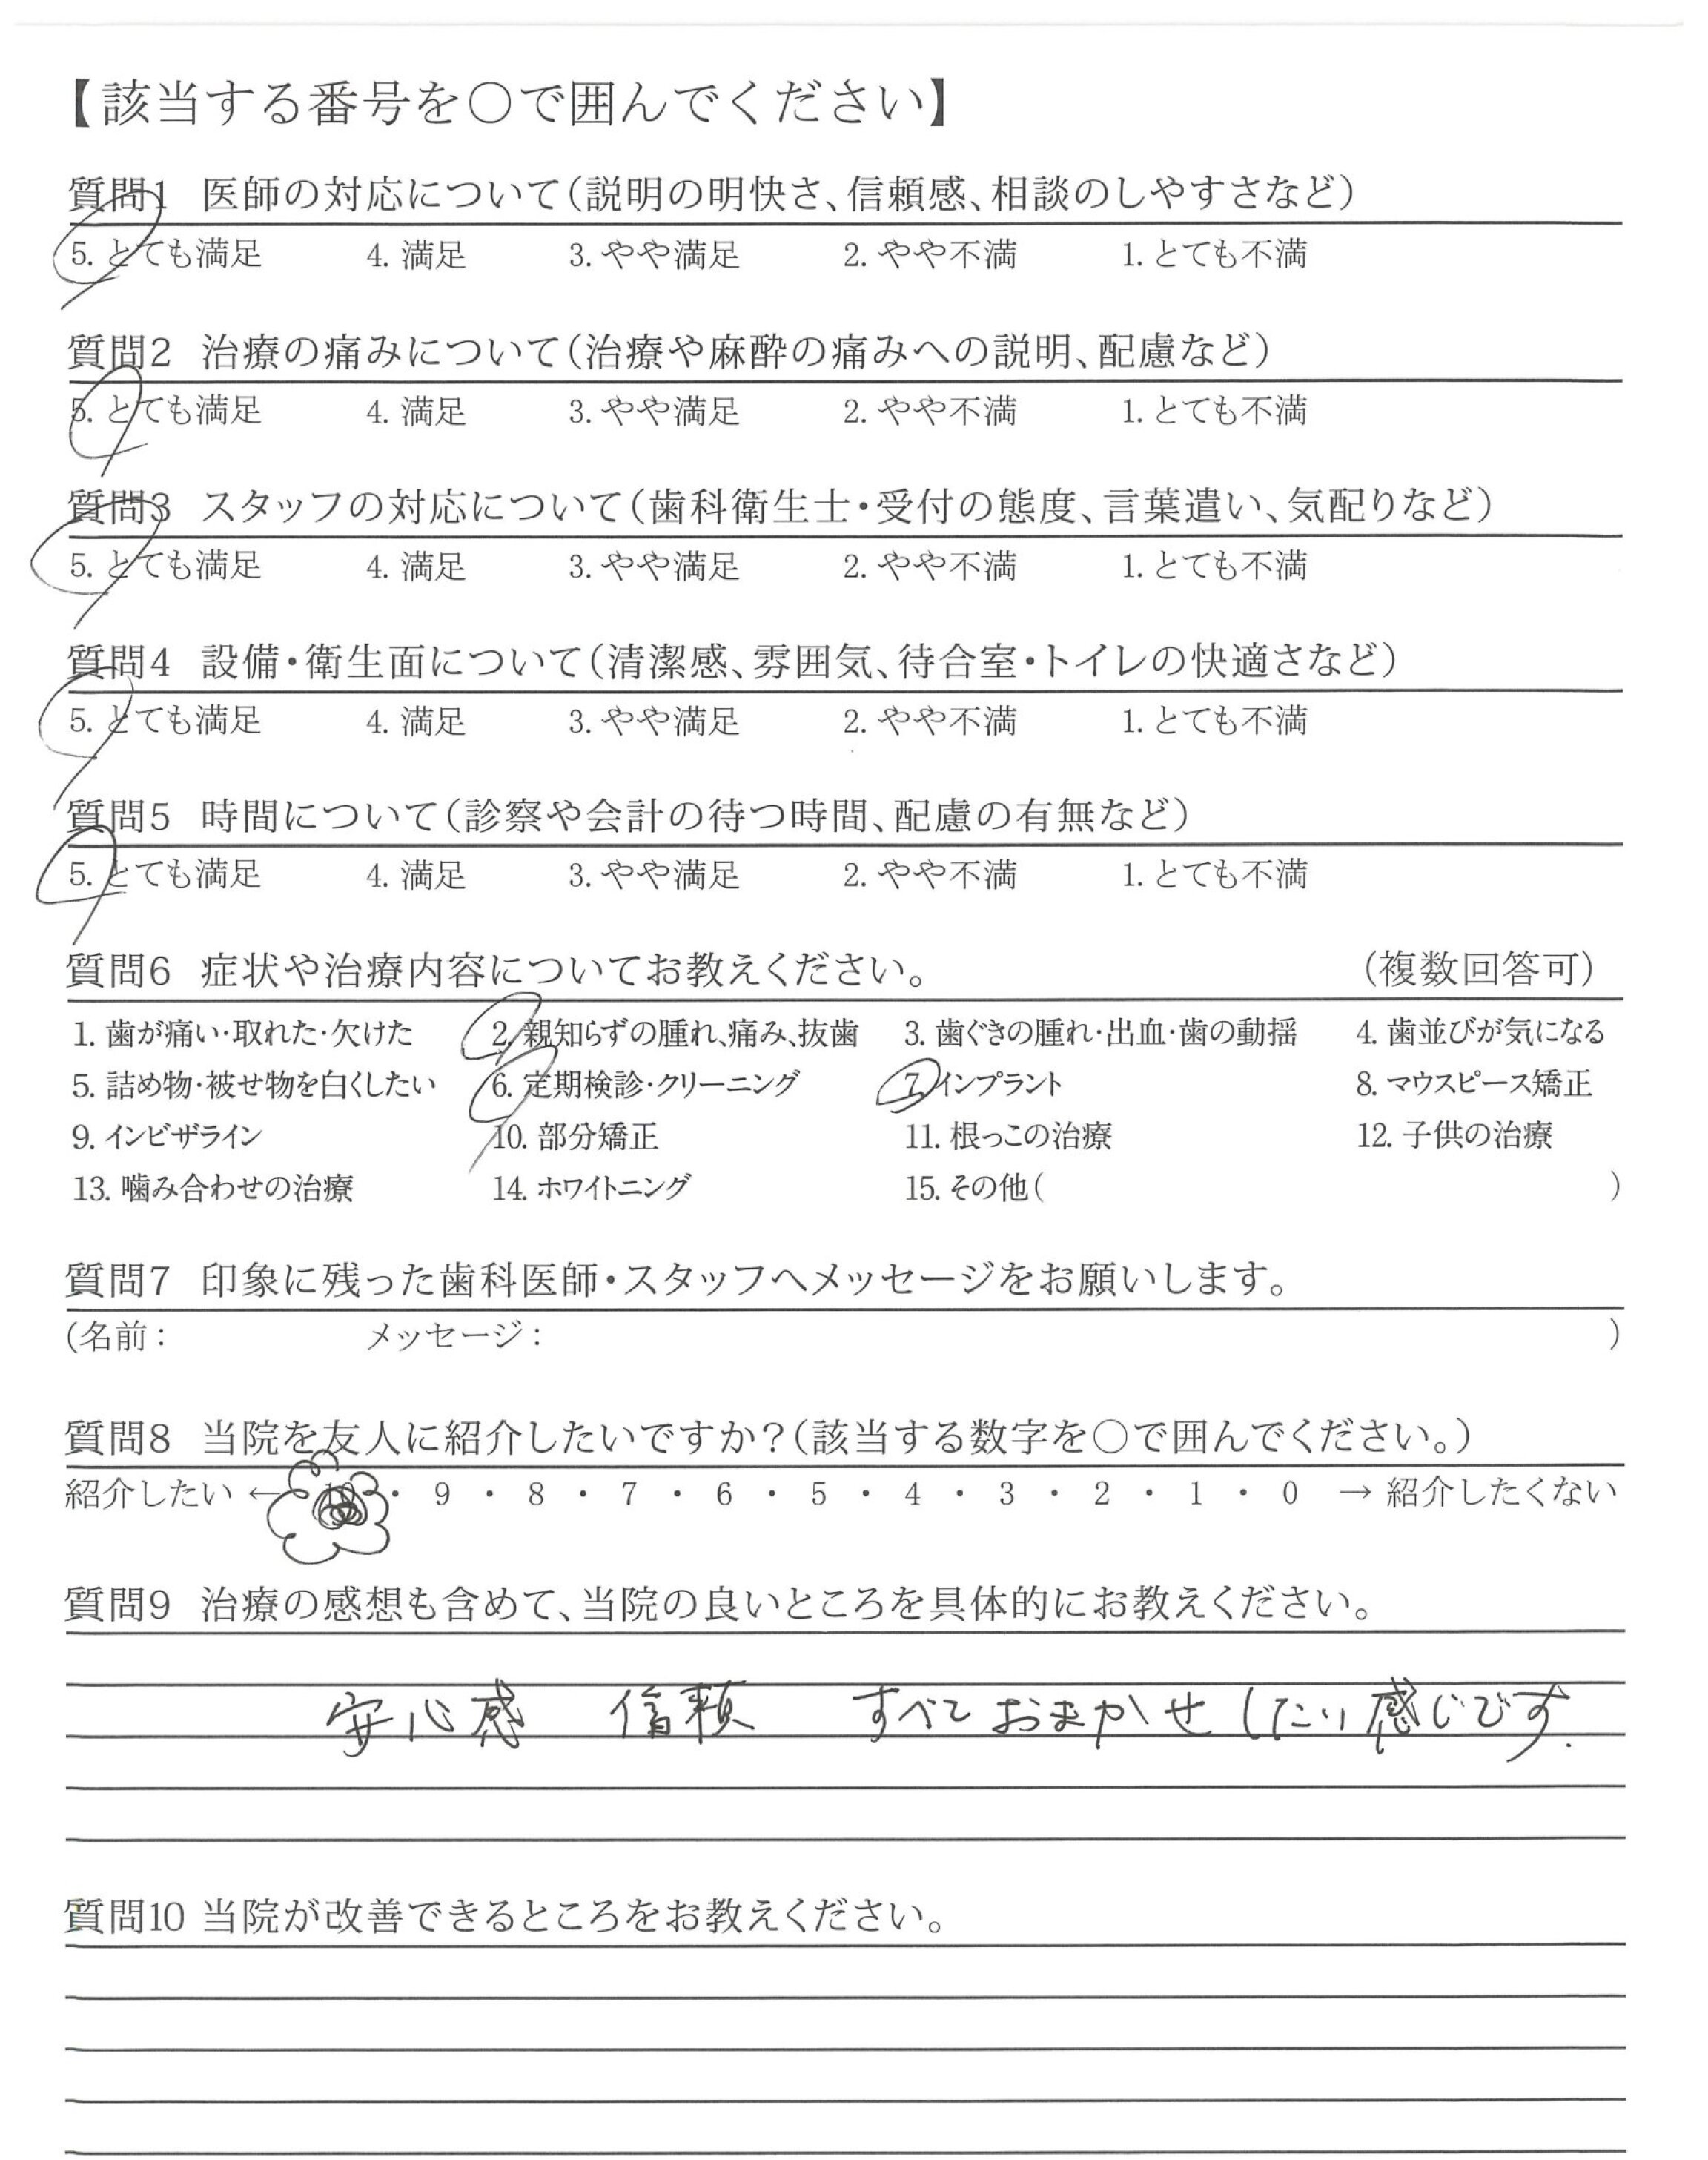 【該当する番号を○で囲んでください】
質問1 医師の対応について(説明の明快さ、信頼感、相談のしやすさなど)
5. とても満足 4. 満足 3. やや満足 2. やや不満 1. とても不満
質問2 治療の痛みについて(治療や麻酔の痛みへの説明、配慮など)
5. とても満足 4. 満足 3. やや満足 2. やや不満 1. とても不満
質問3 スタッフの対応について(歯科衛生士・受付の態度、言葉遣い、気配りなど)
5. とても満足 4. 満足 3. やや満足 2. やや不満 1. とても不満
質問4 設備・衛生面について(清潔感、雰囲気、待合室・トイレの快適さなど)
5. とても満足 4. 満足 3. やや満足 2. やや不満 1. とても不満
質問5 時間について(診察や会計の待つ時間、配慮の有無など)
5. とても満足 4. 満足 3. やや満足 2. やや不満 1. とても不満
質問6 症状や治療内容についてお教えください。 (複数回答可)
1. 歯が痛い・取れた・欠けた 2. 親知らずの腫れ、痛み、抜歯 3. 歯ぐきの腫れ・出血・歯の動揺 4. 歯並びが気になる
5. 詰め物・被せ物を白くしたい 6. 定期検診・クリーニング 7. インプラント 8. マウスピース矯正
9. インビザライン 10. 部分矯正 11. 根っこの治療 12. 子供の治療
13. 噛み合わせの治療 14. ホワイトニング 15. その他( )
質問7 印象に残った歯科医師・スタッフへメッセージをお願いします。
(名前: メッセージ: )
質問8 当院を友人に紹介したいですか?(該当する数字を○で囲んでください。)
紹介したい ← 10 ・ 9 ・ 8 ・ 7 ・ 6 ・ 5 ・ 4 ・ 3 ・ 2 ・ 1 ・ 0 → 紹介したくない
質問9 治療の感想も含めて、当院の良いところを具体的にお教えください。
安心感 信頼 すべておまかせしたい感じです.
質問10 当院が改善できるところをお教えください。